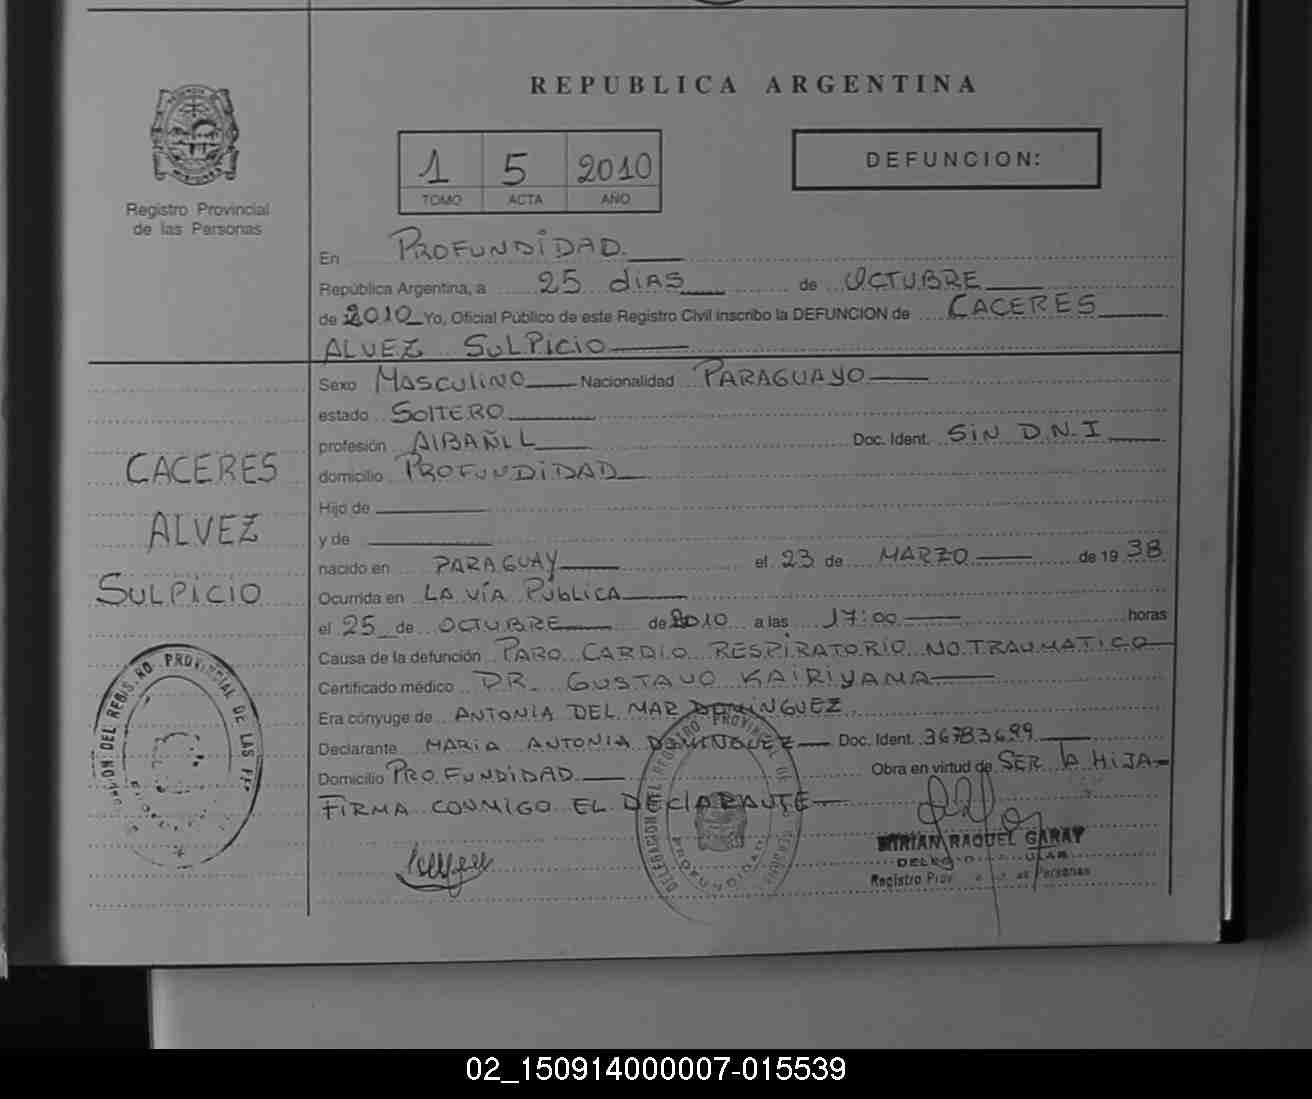 REPUBLICA ARGENTINA
1 5 2010
TOMO ACTA AÑO
DEFUNCION:
Registro Provincial
de las Personas
En PROFUNDIDAD
República Argentina, a 25 dias de OCTUBRE
de 2010 Yo, Oficial Público de este Registro Civil inscribo la DEFUNCION de CACERES
ALVEZ SULPICIO
Sexo MASCULINO Nacionalidad PARAGUAYO
estado SOLTERO
profesión AlBAÑIL Doc. Ident. SiN D.N.I
domicilio PROFUNDIDAD
Hijo de
y de
nacido en PARAGUAY el 23 de MARZO de 1938
Ocurrida en LA VÍA PUBLICA
el 25 de OCTUBRE de 2010 a las 17:00 horas
Causa de la defunción PARO CARDIO RESPIRATORIO NO TRAUMATICO
Certificado médico DR. GUSTAVO KAIRIYAMA
Era cónyuge de ANTONIA DEL MAR DOMÍNGUEZ
Declarante MARIA ANTONIA DOMINGUEZ Doc. Ident. 36783699
Domicilio PROFUNDIDAD Obra en virtud de SER lA HIJA
FIRMA CONMIGO EL DEClARANTE
CACERES
ALVEZ
SULPICIO
DEL REGIS RO. PROVINCIAL DE LAS
DELEGACION DEL REGISTRO PROVINCIAL DE
PROFUNDIDAD
MIRIAN RAQUEL GARAY
Registro Personas
02_150914000007-015539